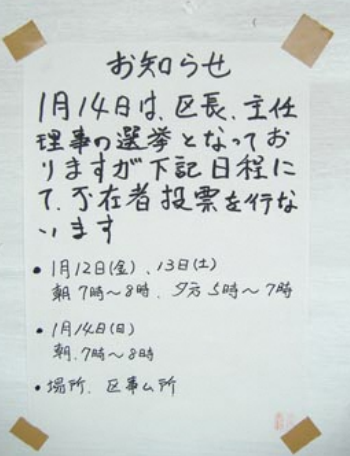 お知らせ
1月14日は、区長、主任
理事の選挙となってお
りますが下記日程に
て、不在者投票を行な
います
• 1月12日(金)、13日(土)
朝7時~8時、夕方5時~7時
• 1月14日(日)
朝、7時~8時
• 場所、区事ム所